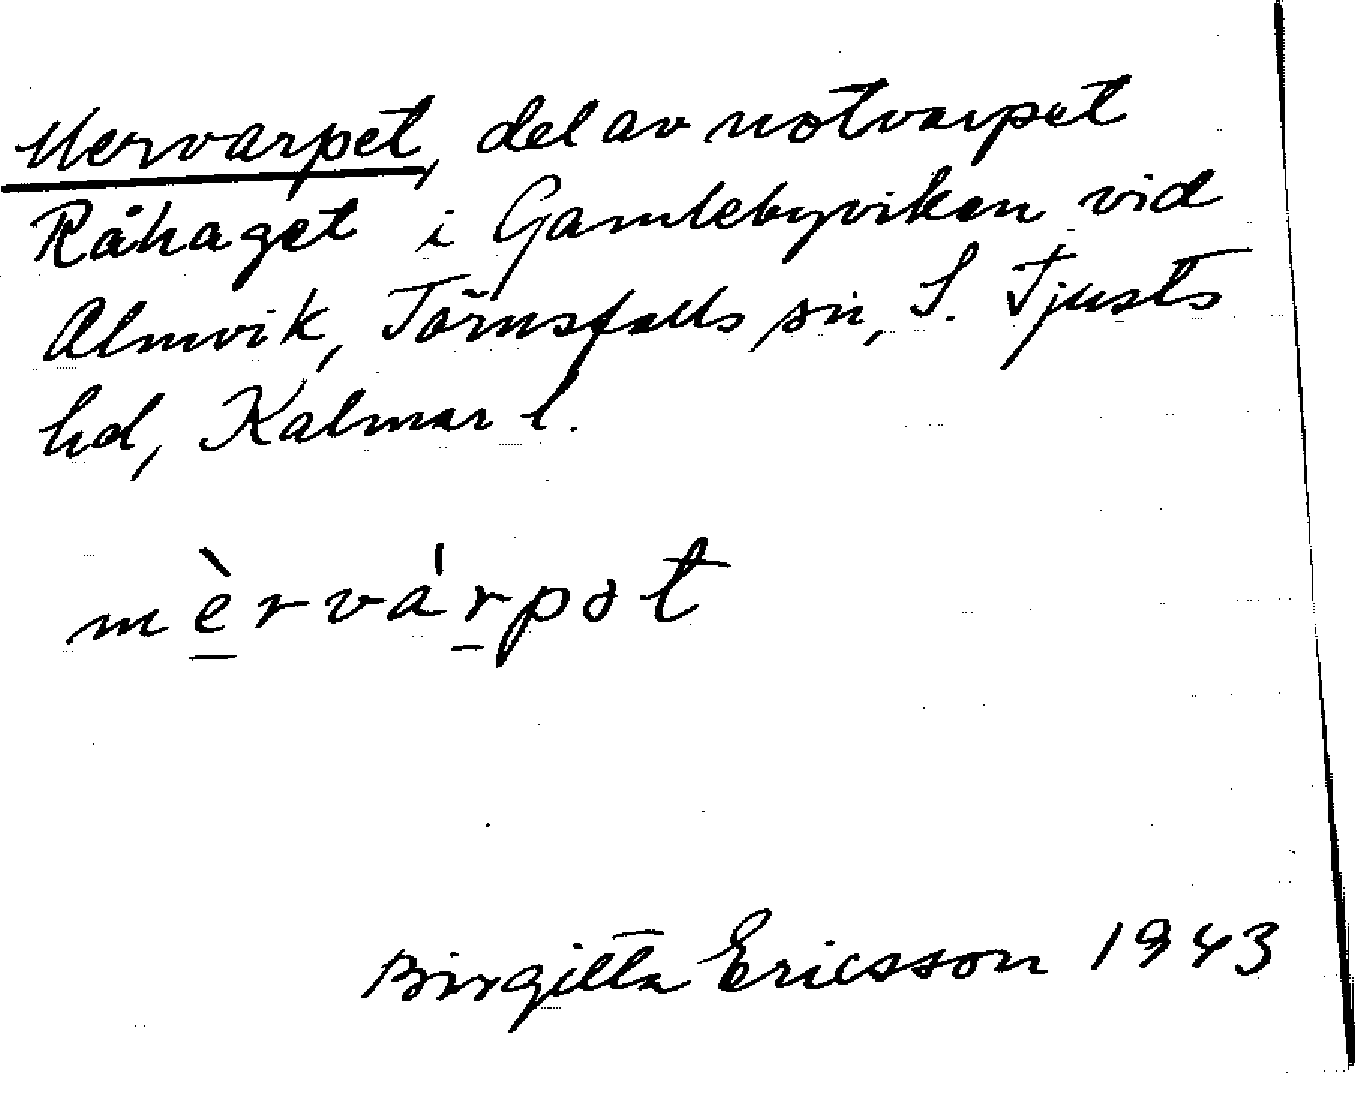 Mervarpet, del av notvarpet
Råhaget i Gamlebyviken vid
Almvik, Törnsfalls sn, S. Tjusts
hd, Kalmar l.
mèrvárpət
Birgitta Ericsson 1943